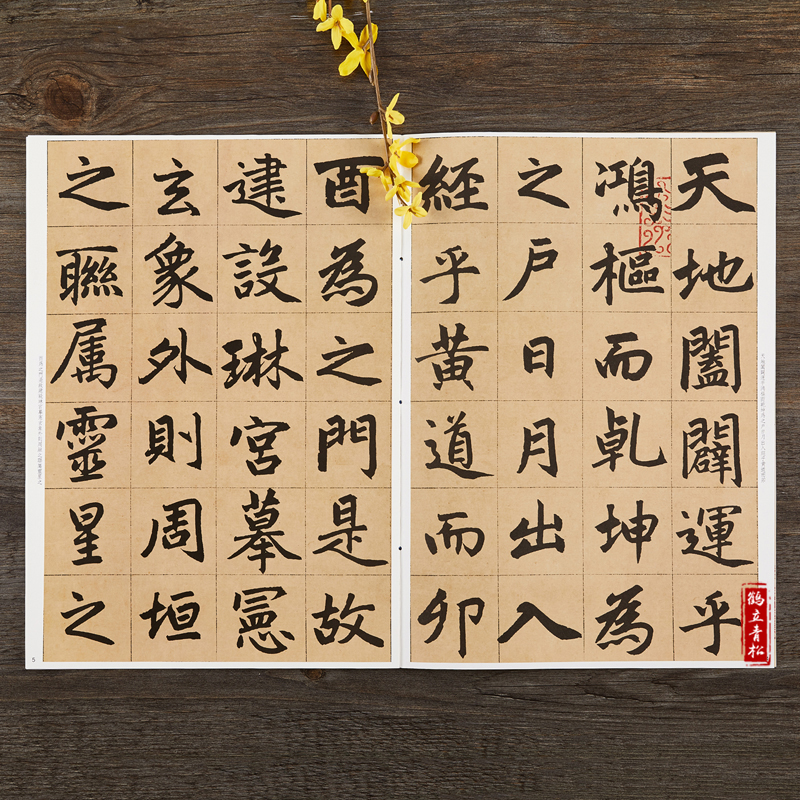 天地闔闢運乎
鴻樞而乹坤為
之戶日月出入
經乎黃道而卯
酉為之門是故
建設琳宮摹憲
玄象外則周垣
之聯属靈星之
5
鶴立青松